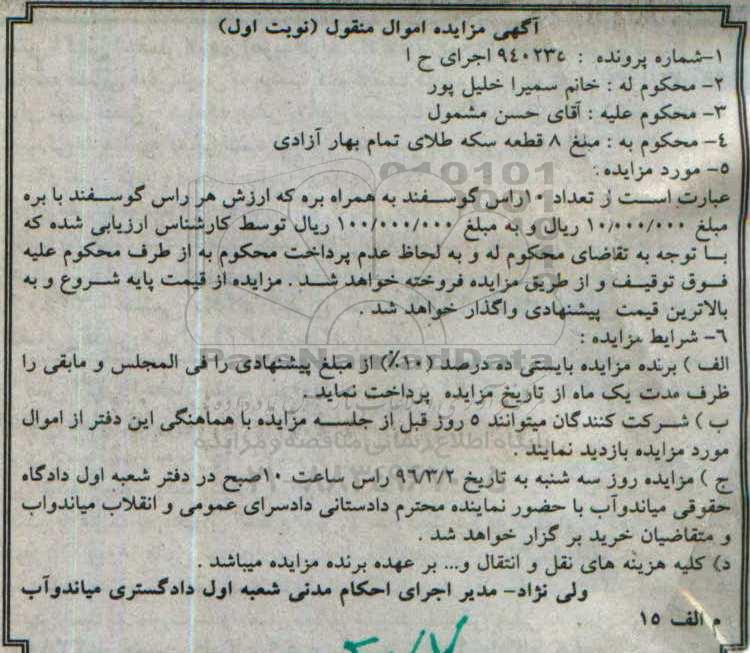 آگهی مزایده اموال منقول (نوبت اول)
۱-شماره پرونده : ۹٤۰۲۳٤ اجرای ح ا
۲- محکوم له : خانم سمیرا خلیل پور
۳- محکوم علیه : آقای حسن مشمول
٤- محکوم به : مبلغ ۸ قطعه سکه طلای تمام بهار آزادی
۵- مورد مزایده :
عبارت است ز تعداد ۱۰راس گوسفند به همراه بره که ارزش هر راس گوسفند با بره
مبلغ ۱۰/۰۰۰/۰۰۰ ریال و به مبلغ ۱۰۰/۰۰۰/۰۰۰ ریال توسط کارشناس ارزیابی شده که
با توجه به تقاضای محکوم له و به لحاظ عدم پرداخت محکوم به از طرف محکوم علیه
فوق توقیف و از طریق مزایده فروخته خواهد شد . مزایده از قیمت پایه شروع و به
بالاترین قیمت پیشنهادی واگذار خواهد شد .
٦- شرایط مزایده :
الف ) برنده مزایده بایستی ده درصد (۱۰٪) از مبلغ پیشنهادی را فی المجلس و مابقی را
ظرف مدت یک ماه از تاریخ مزایده پرداخت نماید .
ب ) شرکت کنندگان میتوانند ۵ روز قبل از جلسه مزایده با هماهنگی این دفتر از اموال
مورد مزایده بازدید نمایند .
ج ) مزایده روز سه شنبه به تاریخ ۹٦/۳/۲ راس ساعت ۱۰صبح در دفتر شعبه اول دادگاه
حقوقی میاندوآب با حضور نماینده محترم دادستانی دادسرای عمومی و انقلاب میاندواب
و متقاضیان خرید بر گزار خواهد شد .
د) کلیه هزینه های نقل و انتقال و... بر عهده برنده مزایده میباشد .
ولی نژاد- مدیر اجرای احکام مدنی شعبه اول دادگستری میاندوآب
م الف ۱۵